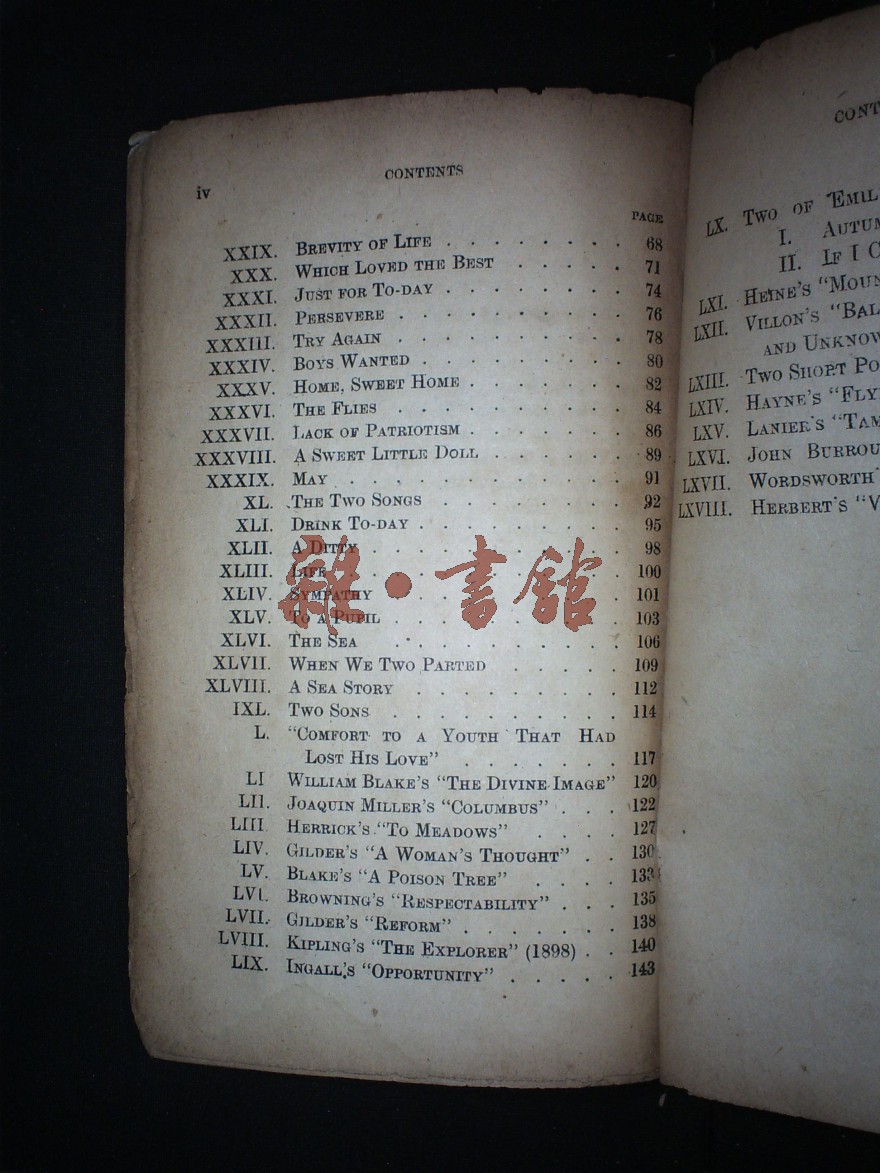 iv
CONTENTS
PAGE
XXIX. BREVITY OF LIFE . . . . . . . . 68
XXX. WHICH LOVED THE BEST . . . . . 71
XXXI. JUST FOR TO-DAY . . . . . . . . 74
XXXII. PERSEVERE . . . . . . . . . . 76
XXXIII. TRY AGAIN . . . . . . . . . . 78
XXXIV. BOYS WANTED . . . . . . . . . 80
XXXV. HOME, SWEET HOME . . . . . . . 82
XXXVI. THE FLIES . . . . . . . . . . 84
XXXVII. LACK OF PATRIOTISM . . . . . . . 86
XXXVIII. A SWEET LITTLE DOLL . . . . . . 89
XXXIX. MAY . . . . . . . . . . . . 91
XL. THE TWO SONGS . . . . . . . . 92
XLI. DRINK TO-DAY . . . . . . . . . 95
XLII. A DITTY . . . . . . . . . . . 98
XLIII. LIFE . . . . . . . . . . . . 100
XLIV. SYMPATHY . . . . . . . . . . 101
XLV. TO A PUPIL . . . . . . . . . . 103
XLVI. THE SEA . . . . . . . . . . 106
XLVII. WHEN WE TWO PARTED . . . . . 109
XLVIII. A SEA STORY . . . . . . . . . 112
IXL. TWO SONS . . . . . . . . . . 114
L. "COMFORT TO A YOUTH THAT HAD
LOST HIS LOVE" . . . . . . . 117
LI WILLIAM BLAKE'S "THE DIVINE IMAGE" 120
LII. JOAQUIN MILLER'S "COLUMBUS" . . . 122
LIII. HERRICK'S "TO MEADOWS" . . . . 127
LIV. GILDER'S "A WOMAN'S THOUGHT" . . 130
LV. BLAKE'S "A POISON TREE" . . . . 133
LVI. BROWNING'S "RESPECTABILITY" . . . 135
LVII. GILDER'S "REFORM" . . . . . . . 138
LVIII. KIPLING'S "THE EXPLORER" (1898) . . 140
LIX. INGALL'S "OPPORTUNITY" . . . . . 143
雜·書館
CONT
LX. TWO OF EMIL
I. AUTUM
II. IF I C
LXI. HEINE'S "MOUN
LXII. VILLON'S "BAL
AND UNKNOW
LXIII. TWO SHORT PO
LXIV. HAYNE'S "FLY
LXV. LANIER'S "TAM
LXVI. JOHN BURROU
LXVII. WORDSWORTH'
LXVIII. HERBERT'S "V